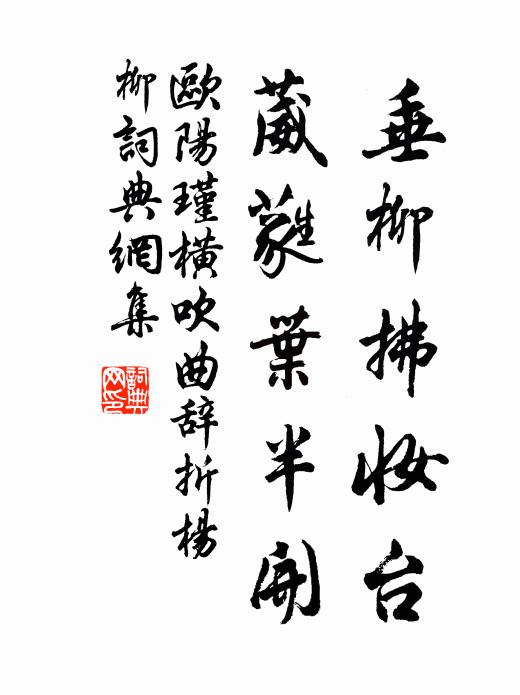 垂柳拂妆台
葳蕤葉半開
歐陽瑾橫吹曲辞折楊
柳詞典網集
詞典网印